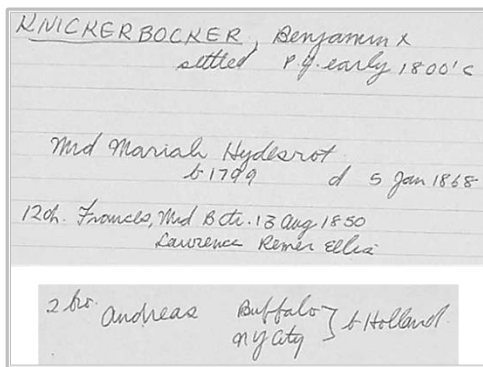 KNICKERBOCKER, Benjamin x
settled P.Y. early 1800's
Mrd Mariah Hydesrot
b 1799 d 5 Jan 1868
12ch. Frances, Mrd B Ctr. 13 Aug 1850
Lawrence Remer Ellis
2 bro. Andreas Buffalo } b Holland.
NY City